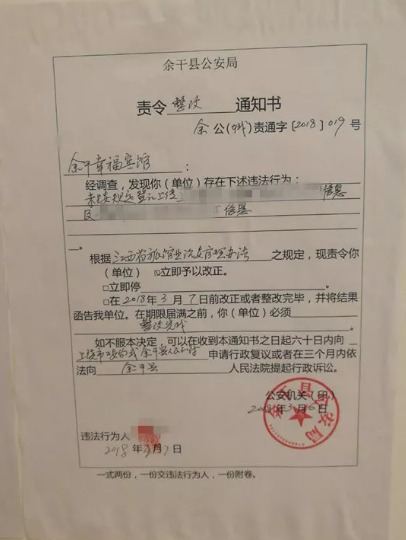 余干县公安局
责令 整改 通知书
余 公（ ）责通字［2018］019 号
余干幸福宾馆 ：
经调查，发现你（单位）存在下述违法行为：
未按规定登记上传 信息
及 信息
根据 江西省旅馆业治安管理办法 之规定，现责令你
（单位） 立即予以改正。
□立即停
□在 2018年 3 月 7 日前改正或者整改完毕，并将结
果函告我单位。在期限届满之前，你（单位）必须
整改完成
如不服本决定，可以在收到本通知书之日起六十日内向
上饶市公安局或余干县人民政府 申请行政复议或者在三个月内依
法向 余干县 人民法院提起行政诉讼。
公安机关（印）
2018年3月6日
违法行为人
2018 年3月7日
一式两份，一份交违法行为人，一份附卷。